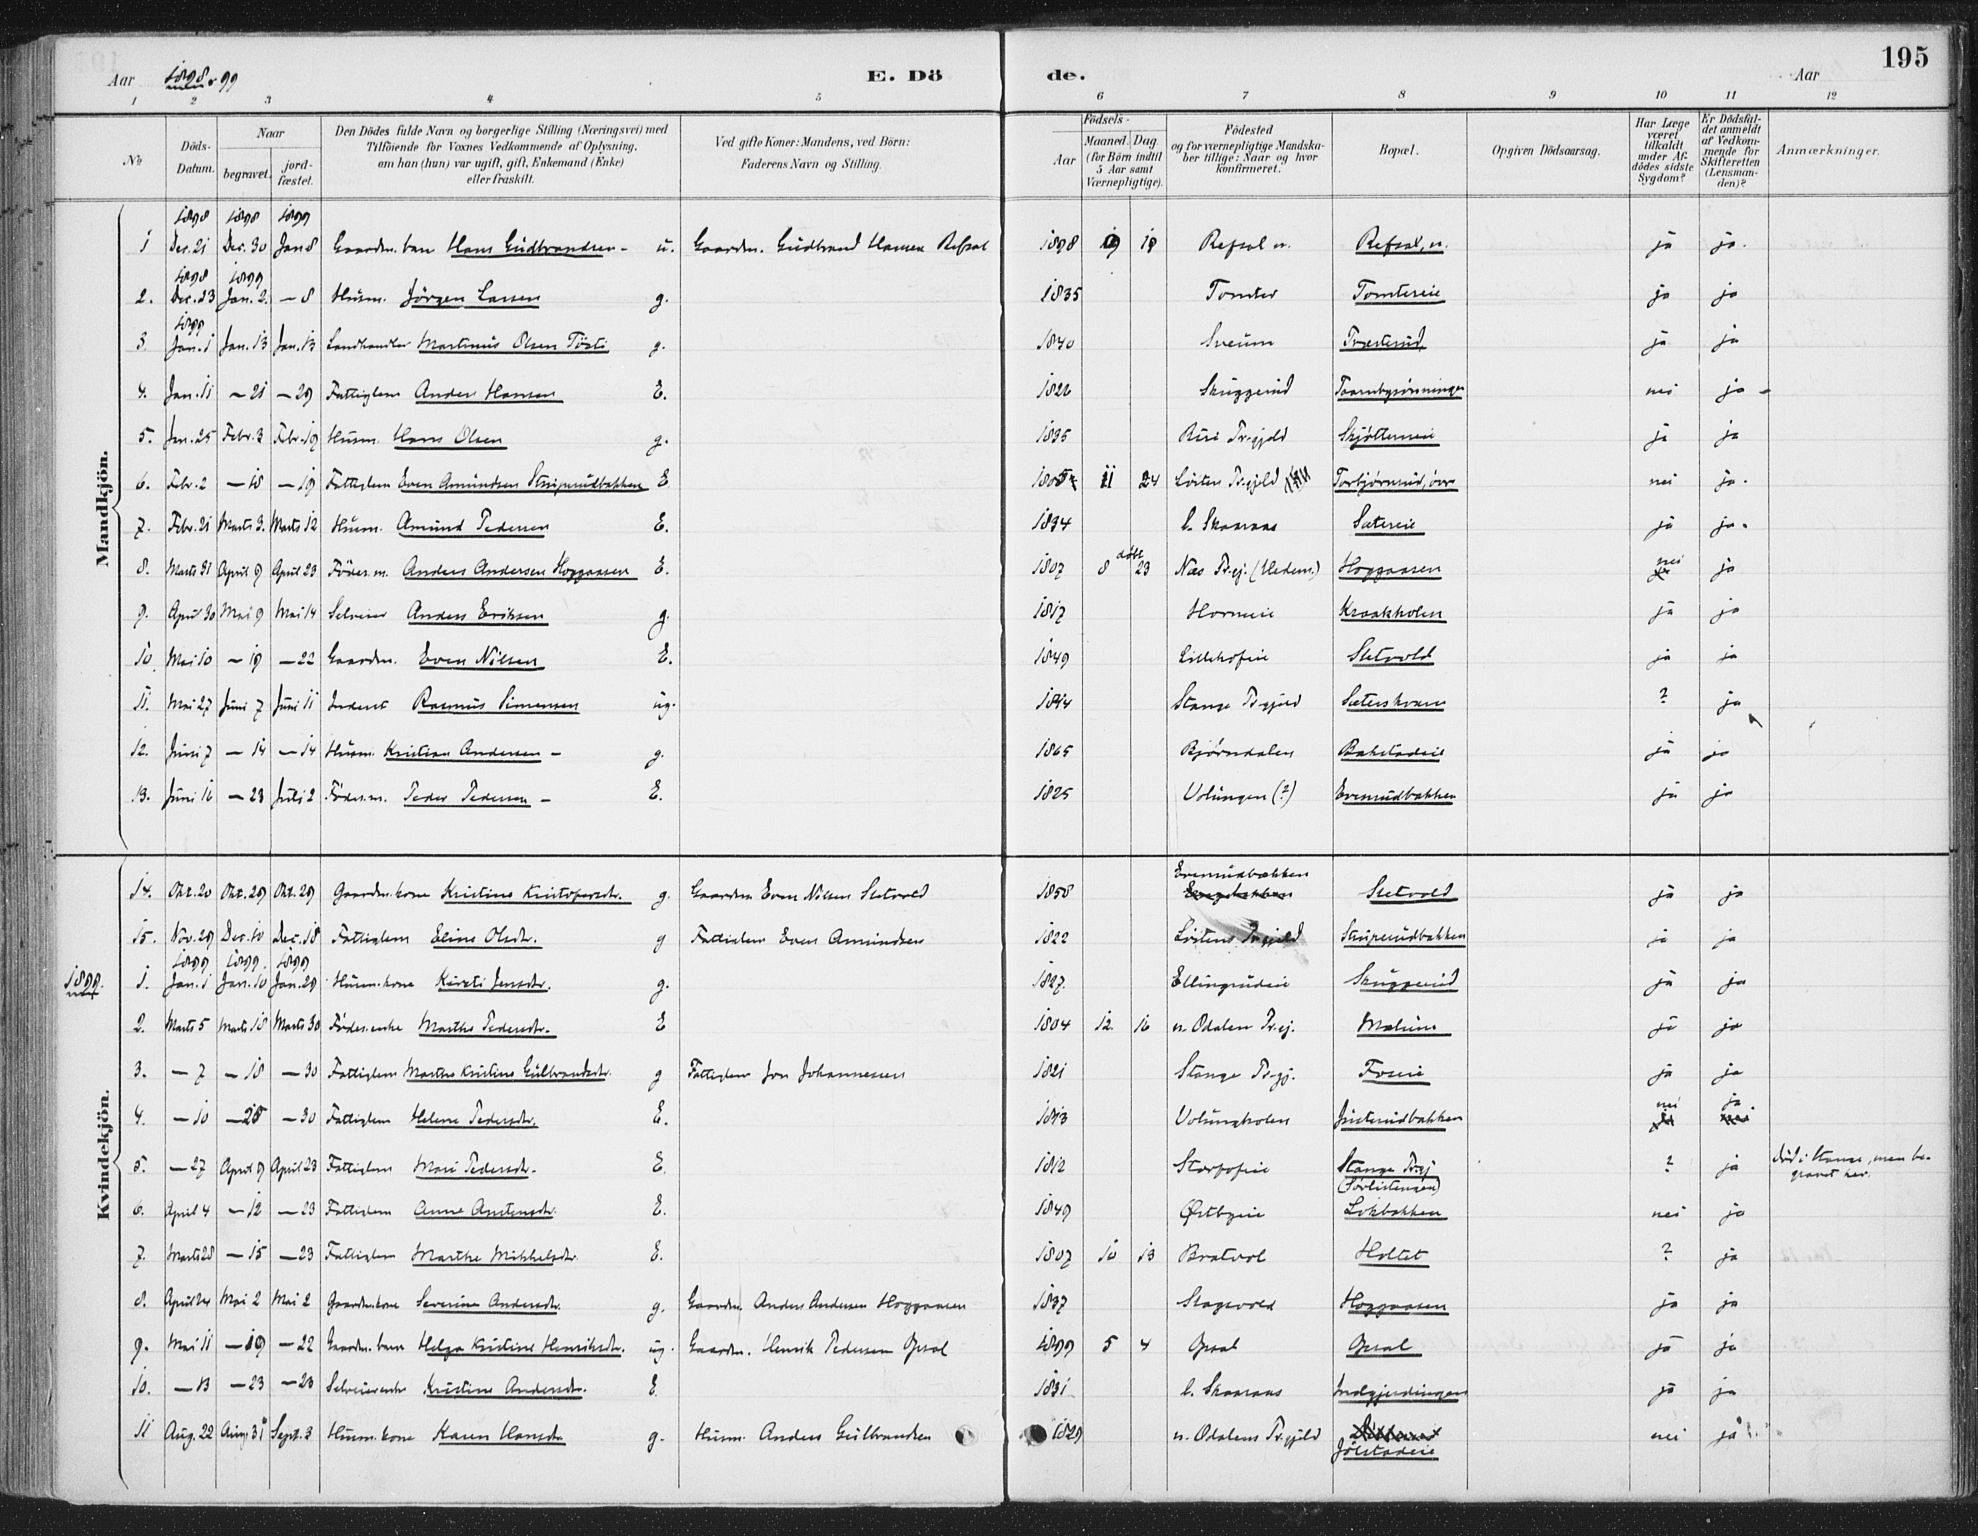 195
Aar 1898 & 99 E. Dö de. Aar
1 2 3 4 5 6 7 8 9 10 11 12
No
Döds-Datum.
Naar begravet. jord-fæstet.
Den Dödes fulde Navn og borgerlige Stilling (Næringsvei) med
Tilföiende for Voxnes Vedkommende af Oplysning,
om han (hun) var ugift, gift, Enkemand (Enke)
eller fraskilt.
Ved gifte Koner: Mandens, ved Börn:
Faderens Navn og Stilling.
Födsels-
Aar Maaned. Dag.
(for Börn indtil 5 Aar samt Værnepligtige).
Födested
og for værnepligtige Mandska-
ber tillige: Naar og hvor
konfirmeret.
Bopæl.
Opgiven Dödsaarsag.
Har Læge været tilkaldt under Af-dödes sidste Sygdom?
Er Dödsfal-det anmeldt af Vedkom-mende for Skifteretten (Lensman-den)?
Anmærkninger.
Mandkjön.
1898 1898 1899
1 Dec. 21 Dec. 30 Jan 8 Gaardm. barn Hans Gudbrandsen - u. Gaardm. Gudbrand Hansen Refsal 1898 19 18 Refsal n. Refsal, n. ja ja.
1898 1899
2. Dec. 23 Jan. 2. - 8 Husm. Jörgen Larsen g. 1835 Tomter Tomtereie ja ja
1899
3 Jan. 1 Jan. 13 Jan. 13 Landhandler Martinus Olsen Tösti g. 1840 Sveum Træterud ja ja
4. Jan. 11 - 21 - 29 Fattiglem Anders Hansen E. 1822 Skuggerud nei ja
5. Jan. 25 Febr. 3 Febr. 19 Husm. Hans Olsen g. 1835 Ruse Pr.gjeld Skjøttereie ja ja
6. Febr. 2 - 18 - 19 Fattiglem Even Amundsen Struperudbakken E 11 24 Løiten Pr.gjeld Torbjørnrud, øvre nei ja.
7. Febr. 21 Marts 3. Marts 12 Husm. Amund Pedersen E. 1834 l. Skaaraas Sætereie ja ja.
8. Marts 31 April 9 April 23 Föder.m. Anders Andersen Hoggaasen E. 1807 8 döbt 23 Næs Pr.gj. (Hedem.) Hoggaasen nei ja
9. April 30 Mai 9 Mai 14 Selveier Anders Eriksen g. 1817 Horneie Kraakholen ja ja
10. Mai 10 - 19 - 22 Gaardm. Even Nilsen E. 1849 Lillehofeie Sletvold ja ja
11. Mai 27 Juni 7 Juni 11 Inderst Rasmus Simensen ug. 1844 Stange Pr.gjeld Sæterskvern ? ja
12. Juni 7 - 14 - 14 Husm. Kristian Andersen - g. 1865 Bjørndalen Bakstadeie ja ja
13. Juni 16 - 23 Juli 2 Föder.m. Peder Pedersen - E. 1825 Volungen (?) Evenrudbakken ja ja
Kvindekjön.
Evenrudbakken
14. Okt. 20 Okt. 29 Okt. 29 Gaardm.kone Kristine Kristofersdr. g. Gaardm Even Nilsen Sletvold 1858 Sletvold ja ja
15. Nov. 29 Dec. 10 Dec. 18 Fattiglem Eline Olsdr. g Fattiglem Even Amundsen 1822 Löitens Pr.gjeld Struperudbakken ja ja
1899. 1899 1899. 1899
1. Jan. 1 Jan. 10 Jan. 29 Husm.kone Kirsti Jensdr. g. 1827. Ellingrudeie Skuggerud ja ja
2. Marts 5 Marts 18 Marts 30 Föder.enke Marthe Pedersdr. E 1804 12. 16 n. Odalen Pr.gj. Malum ja ja
3. - 7 - 18 - 30 Fattiglem Marthe Kristine Gulbrandsdr. g Fattiglem Jon Johannessen 1821 Stange Pr.gj. Foseie ja ja
4. - 10 - 25 - 30 Fattiglem Helene Pedersdr. E. 1813 Volungholen Justerudbakken nei ja
5. - 27 April 9 April 23 Fattiglem Mari Pedersdr. E. 1812 Storfoseie Stange Pr.gj ? ja död i Stange, men be-
gravet her.
6. April 4 - 12 - 23 Fattiglem Anne Arntensdr. E. 1849 Østbyeie Lokbakken nei ja
7. Marts 28 - 15 - 23 Fattiglem Marthe Mikkelsdr. E. 1807 10 13 Bratvol Holtet ? ja
8. April 24 Mai 2 Mai 2 Gaardm.kone Severine Andersdr. g. Gaardm. Anders Andersen Hoggaasen 1837 Slagsvold Hoggaasen ja ja
9. Mai 11 - 19 - 22 Gaardm. barn Helga Kristine Henriksdr. ug. Gaardm. Henrik Pedersen Opsal 1899 5 4 Opsal Opsal ja ja
10. - 13 - 23 - 23 Selveierenke Kristine Andersdr. E. 1831 l. Skaaraas Indgjerdingen ja ja
11 Aug. 22 Aug. 31 Sept. 3 Husm. kone Karen Hansdr. g. Husm. Anders Gulbrandsen 1829 n. Odalens Pr.gjeld nei ja
Jölstadeie